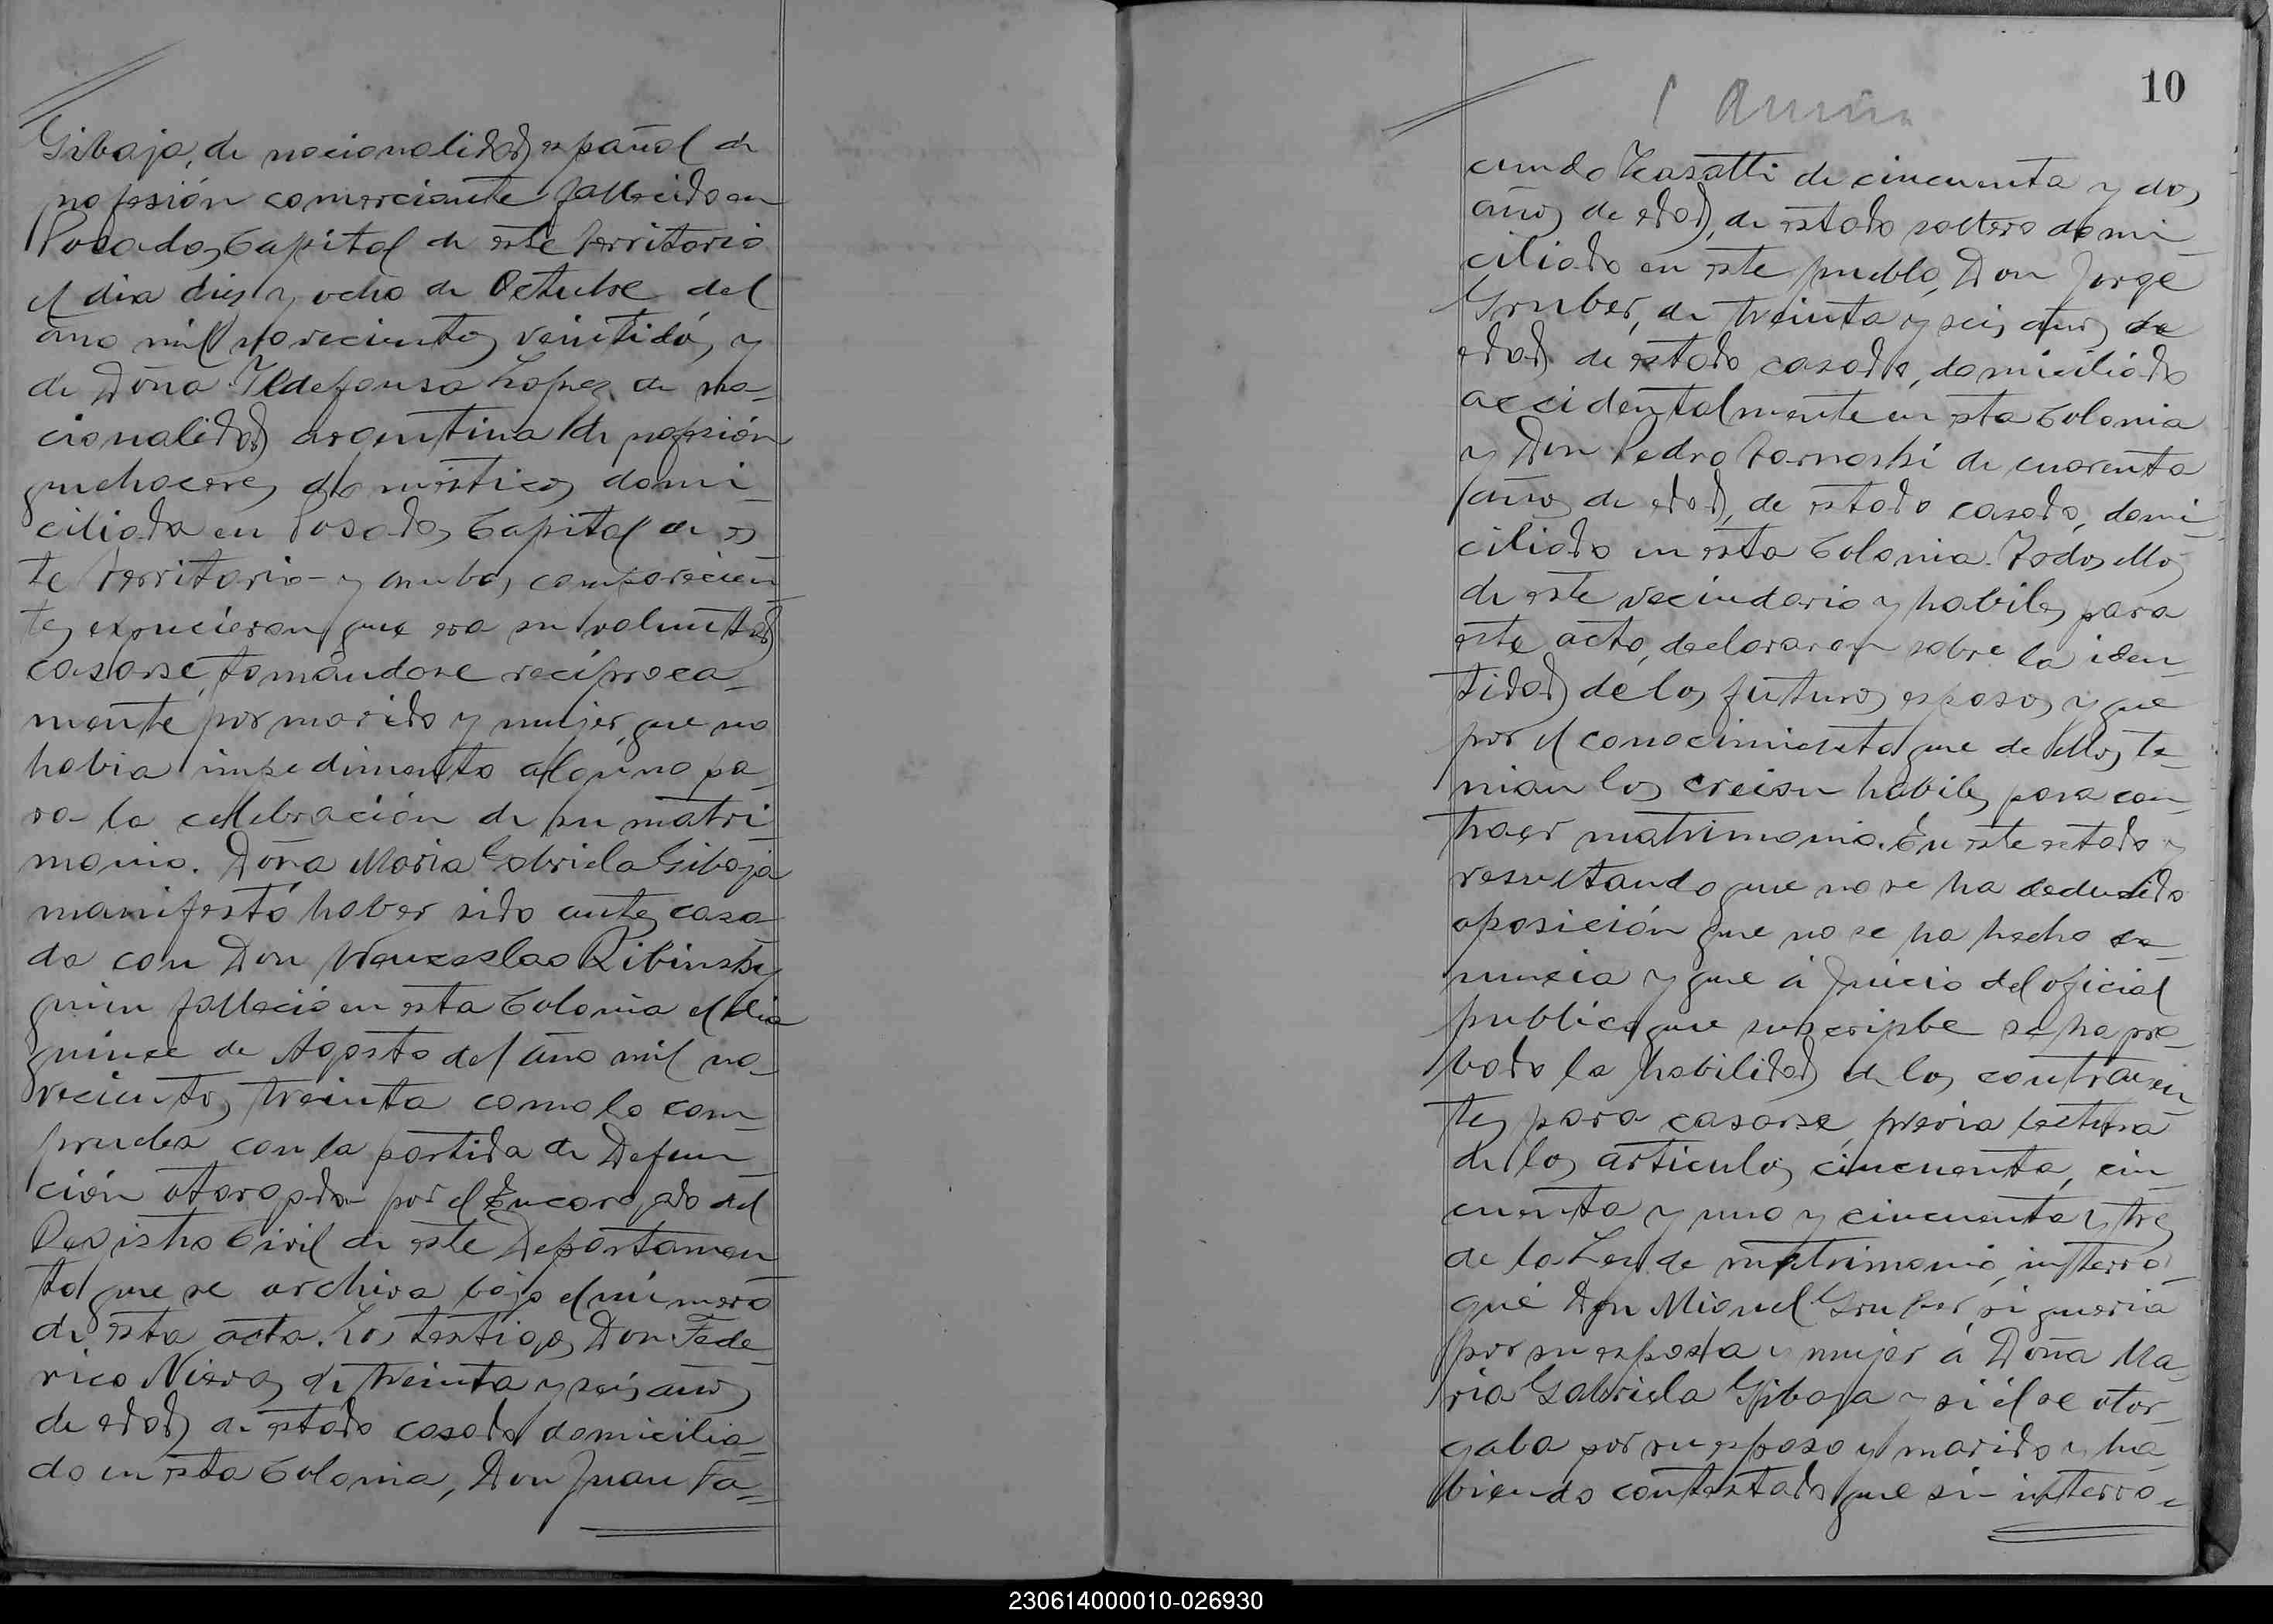 Gibaja, de nacionalidad español de
profesión comerciante fallecido en
Posadas Capital de este territorio
el dia diez y ocho de Octubre del
año mil novecientos veintidós y
de Doña Ildefonsa Lopez de na-
cionalidad argentina de profesión
quehaceres domésticos domi-
ciliada en Posadas Capital de es-
te territorio - y ambos comparecien-
tes expucieron que era su voluntad
casarse, tomándose recíproca-
mente por marido y mujer, que no
habia impedimento alguno pa-
ra la cellebración de su matri-
monio. Doña Maria Gabriela Gibaja
manifestó haber sido antes casa-
da con Don Wenceslao Ribinsky
quien falleció en esta Colonia el dia
quince de Agosto del año mil no-
vecientos treinta como lo com-
prueba con la partida de Defun-
ción otorgada por el Encargado del
Registro Civil de este Departamen-
to que se archiva bajo el número
de esta acta. Los testigos Don Fede-
rico Nieras de treinta y seis años
de edad de estado casado domicilia-
do en esta Colonia, Don Juan Fa-
10
cundo de cincuenta y dos
años de edad, de estado soltero domi-
ciliado en este pueblo, Don Jorge
Gruber, de treinta y seis años de
edad de estado casado, domiciliado
accidentalmente en esta Colonia
y Don Pedro de cuarenta
años de edad, de estado casado, domi-
ciliado en esta Colonia. Todos ellos
de este vecindario y habiles para
este acto, declararon sobre la iden-
tidad de los futuros esposos y que
por el conocimiento que de ellos te-
nian los creian habiles para con-
traer matrimonio. En este estado y
resultando que no se ha deducido
oposición que no se ha hecho de-
nuncia y que á Juicio del oficial
publico que suscripbe se ha pro-
bado la habilidad de los contrayen-
tes para casarse, previa lectura
de los articulos cincuenta, cin-
cuenta y uno y cincuenta y tres
de la Ley de matrimonio, interro-
gué Don Miguel Gruber, si queria
por su esposa y mujer á Doña Ma-
ria Gabriela Gibaja y si él se otor-
gaba por su esposo y marido y ha-
biendo contestado que si - interro-